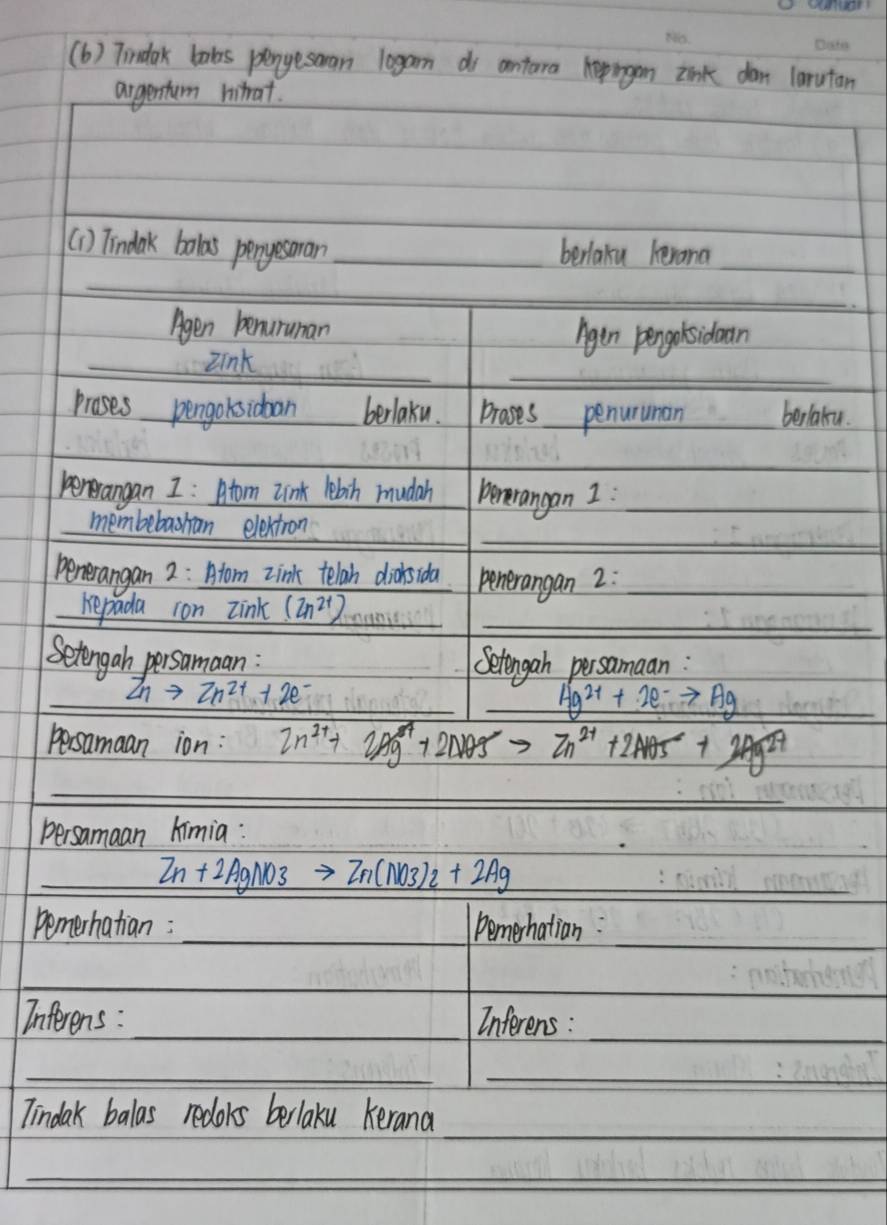 No. Date
(b) Tindak balas penyesaran logam di antara kepingan zink dan larutan
argentum nitrat.
(i) Tindak balas penyesaran ____ berlaku kerana ____
Agen penurunan Agen pengoksidaan
zink
Proses pengoksidaan berlaku. Proses penurunan berlaku.
Penerangan 1: Atom zink lebih mudah Penerangan 1:
membebaskan elektron
Penerangan 2: Atom zink telah dioksida Penerangan 2:
kepada ion zink (Zn²⁺)
Setengah persamaan: Setengah persamaan:
Zn → Zn²⁺ + 2e⁻ Ag²⁺ + 2e⁻ → Ag
Persamaan ion:
Persamaan kimia:
Zn + 2AgNO3 → Zn(NO3)2 + 2Ag
Pemerhatian: Pemerhatian:
Inferens: Inferens:
Tindak balas redoks berlaku kerana